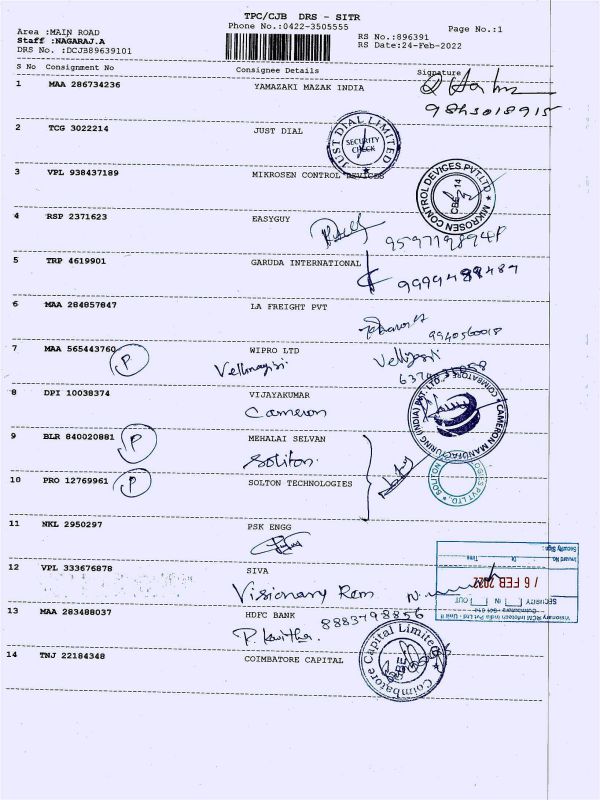 TPC/CJB DRS - SITR
Phone No.:0422-3505555
Page No.:1
Area :MAIN ROAD
Staff :NAGARAJ.A
DRS No. :DCJB89639101
RS No.:896391
RS Date:24-Feb-2022
S No Consignment No Consignee Details Signature
1 MAA 286734236 YAMAZAKI MAZAK INDIA
9843018915
2 TCG 3022214 JUST DIAL
JUST DIAL LIMITED
SECURITY CHECK
3 VPL 938437189 MIKROSEN CONTROL DEVICES
MIKROSEN CONTROL DEVICES PVT.LTD
CBE-14
4 RSP 2371623 EASYGUY
5 TRP 4619901 GARUDA INTERNATIONAL
9994488487
6 MAA 284857847 LA FREIGHT PVT
9940560018
7 MAA 565443760 P WIPRO LTD
Vellingiri
8 DPI 10038374 VIJAYAKUMAR
Cameron
CAMERON MANUFACTURING (INDIA) PVT. LTD.
COIMBATORE
9 BLR 840020881 P MEHALAI SELVAN
Soliton
10 PRO 12769961 P SOLTON TECHNOLOGIES
11 NKL 2950297 PSK ENGG
12 VPL 333676878 SIVA
Visionary Rcm
Visionary RCM Infotech India Pvt Ltd - Unit II
SECURITY IN OUT
16 FEB 2022
Inward No Dt Time
Security Sign :
13 MAA 283488037 HDFC BANK
8883798856
P. Kavitha
14 TNJ 22184348 COIMBATORE CAPITAL
Coimbatore Capital Limited